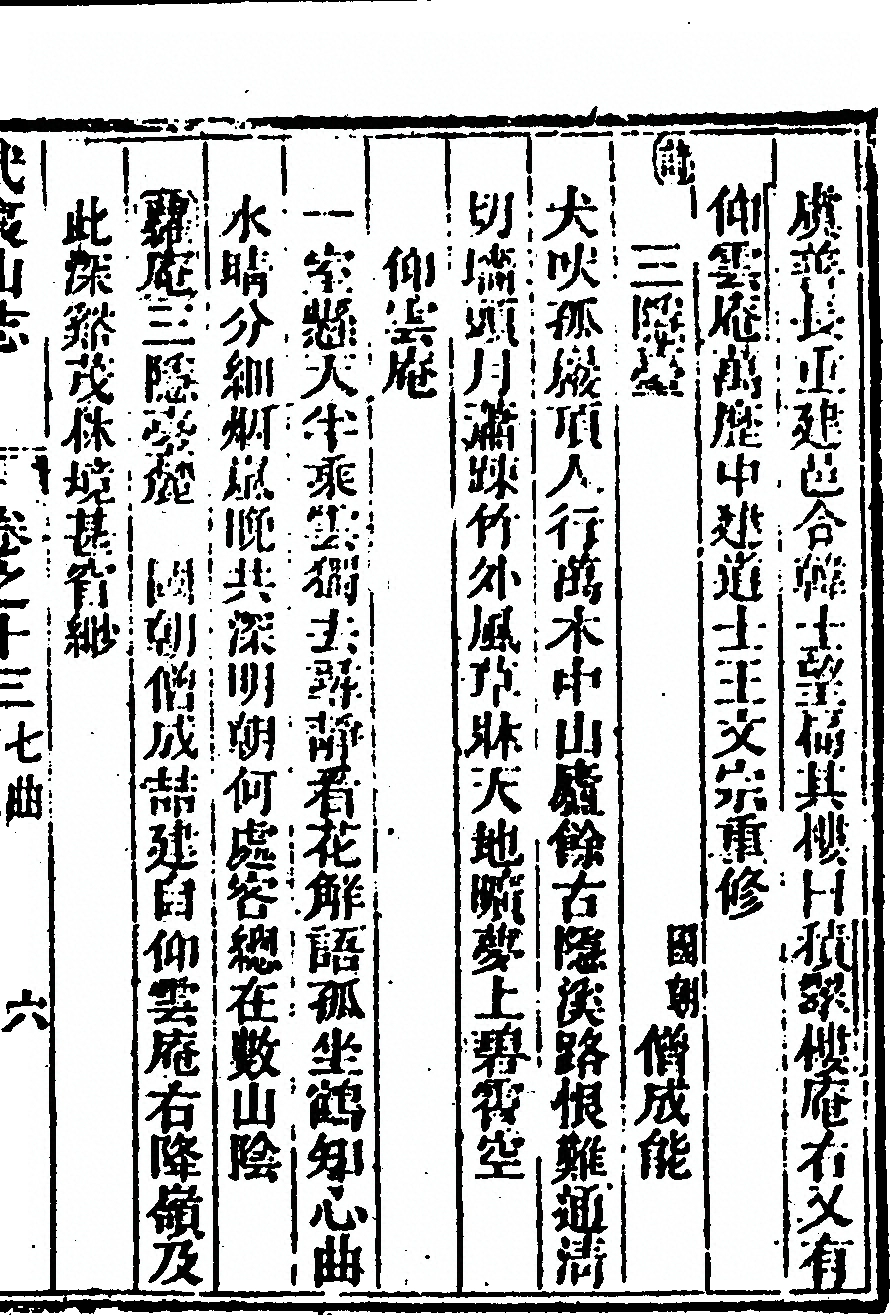 虞善長重建邑令韓士望扁其樓曰積翠樓庵右又有
仰雲庵萬歷中建道士王文宗重修
詩 三隱臺 國朝 僧成能
犬吠孤巖頂人行萬木中山廬餘古隱溪路恨難通清
切墻頭月瀟踈竹外風草牀天地曠夢上碧霞空
仰雲庵
一室懸天半乘雲獨去尋靜看花解語孤坐鶴知心曲
水晴分細烟嵐晚共深明朝何處客總在數山陰
庵三隱臺麓 國朝僧成喆建自仰雲庵右降嶺及
此深谿茂林境甚窅緲
武夷山志 卷之十三 七曲 六